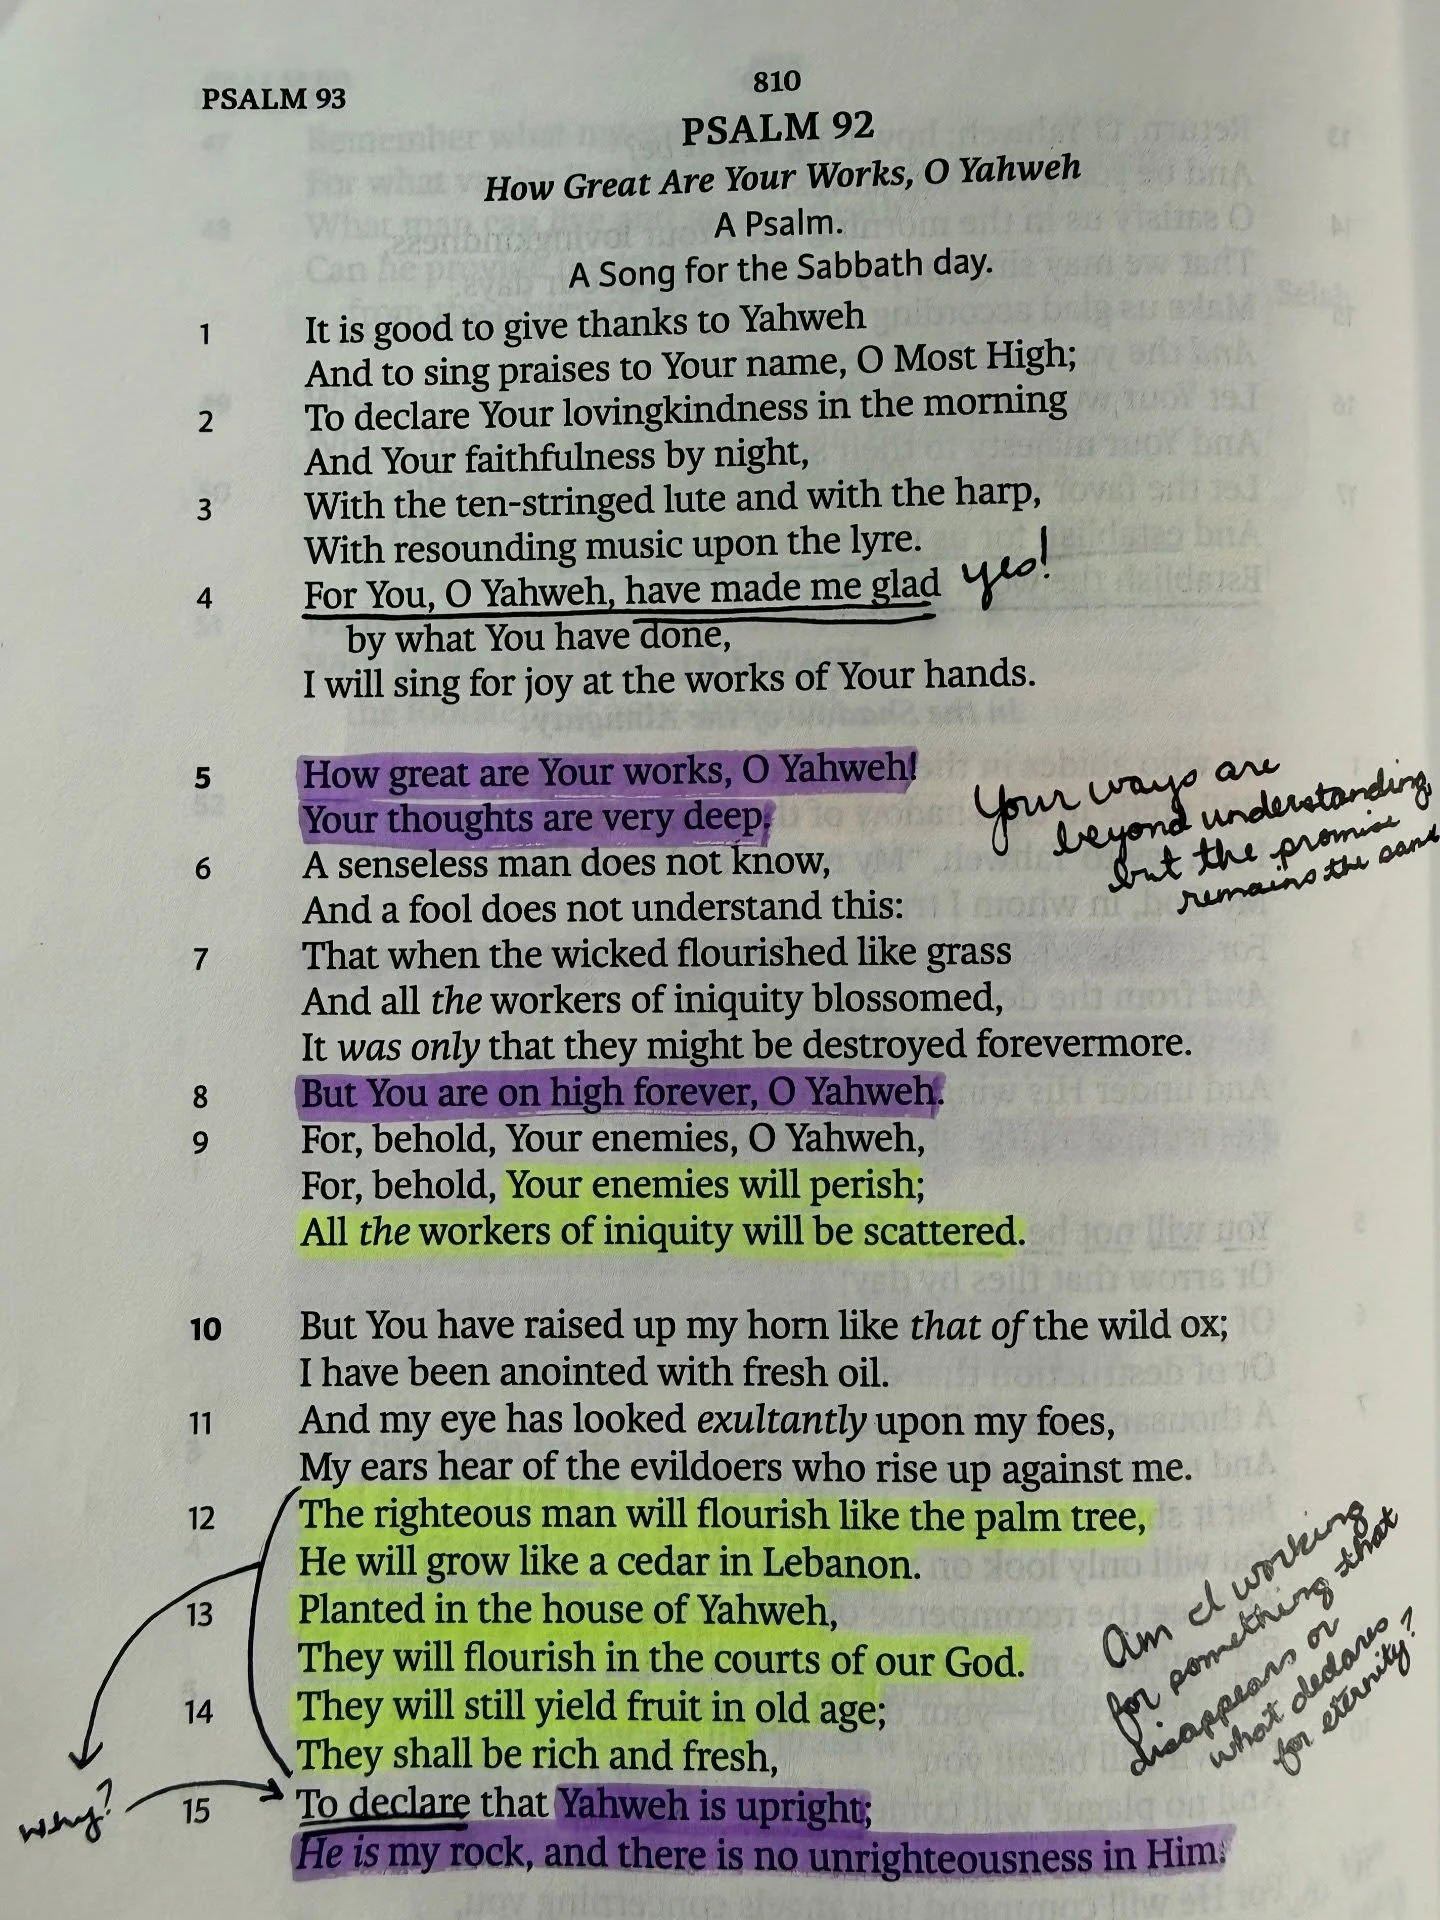 PSALM 93
810
PSALM 92
How Great Are Your Works, O Yahweh
A Psalm.
A Song for the Sabbath day.
1 It is good to give thanks to Yahweh
And to sing praises to Your name, O Most High;
2 To declare Your lovingkindness in the morning
And Your faithfulness by night,
3 With the ten-stringed lute and with the harp,
With resounding music upon the lyre.
4 For You, O Yahweh, have made me glad yes!
by what You have done,
I will sing for joy at the works of Your hands.
5 How great are Your works, O Yahweh!
Your thoughts are very deep.
Your ways are
beyond understanding,
but the promise
remains the same
6 A senseless man does not know,
And a fool does not understand this:
7 That when the wicked flourished like grass
And all the workers of iniquity blossomed,
It was only that they might be destroyed forevermore.
8 But You are on high forever, O Yahweh.
9 For, behold, Your enemies, O Yahweh,
For, behold, Your enemies will perish;
All the workers of iniquity will be scattered.
10 But You have raised up my horn like that of the wild ox;
I have been anointed with fresh oil.
11 And my eye has looked exultantly upon my foes,
My ears hear of the evildoers who rise up against me.
12 The righteous man will flourish like the palm tree,
He will grow like a cedar in Lebanon.
13 Planted in the house of Yahweh,
They will flourish in the courts of our God.
14 They will still yield fruit in old age;
They shall be rich and fresh,
Am I working
for something that
disappears or
what declares
for eternity?
why?
15 To declare that Yahweh is upright;
He is my rock, and there is no unrighteousness in Him.